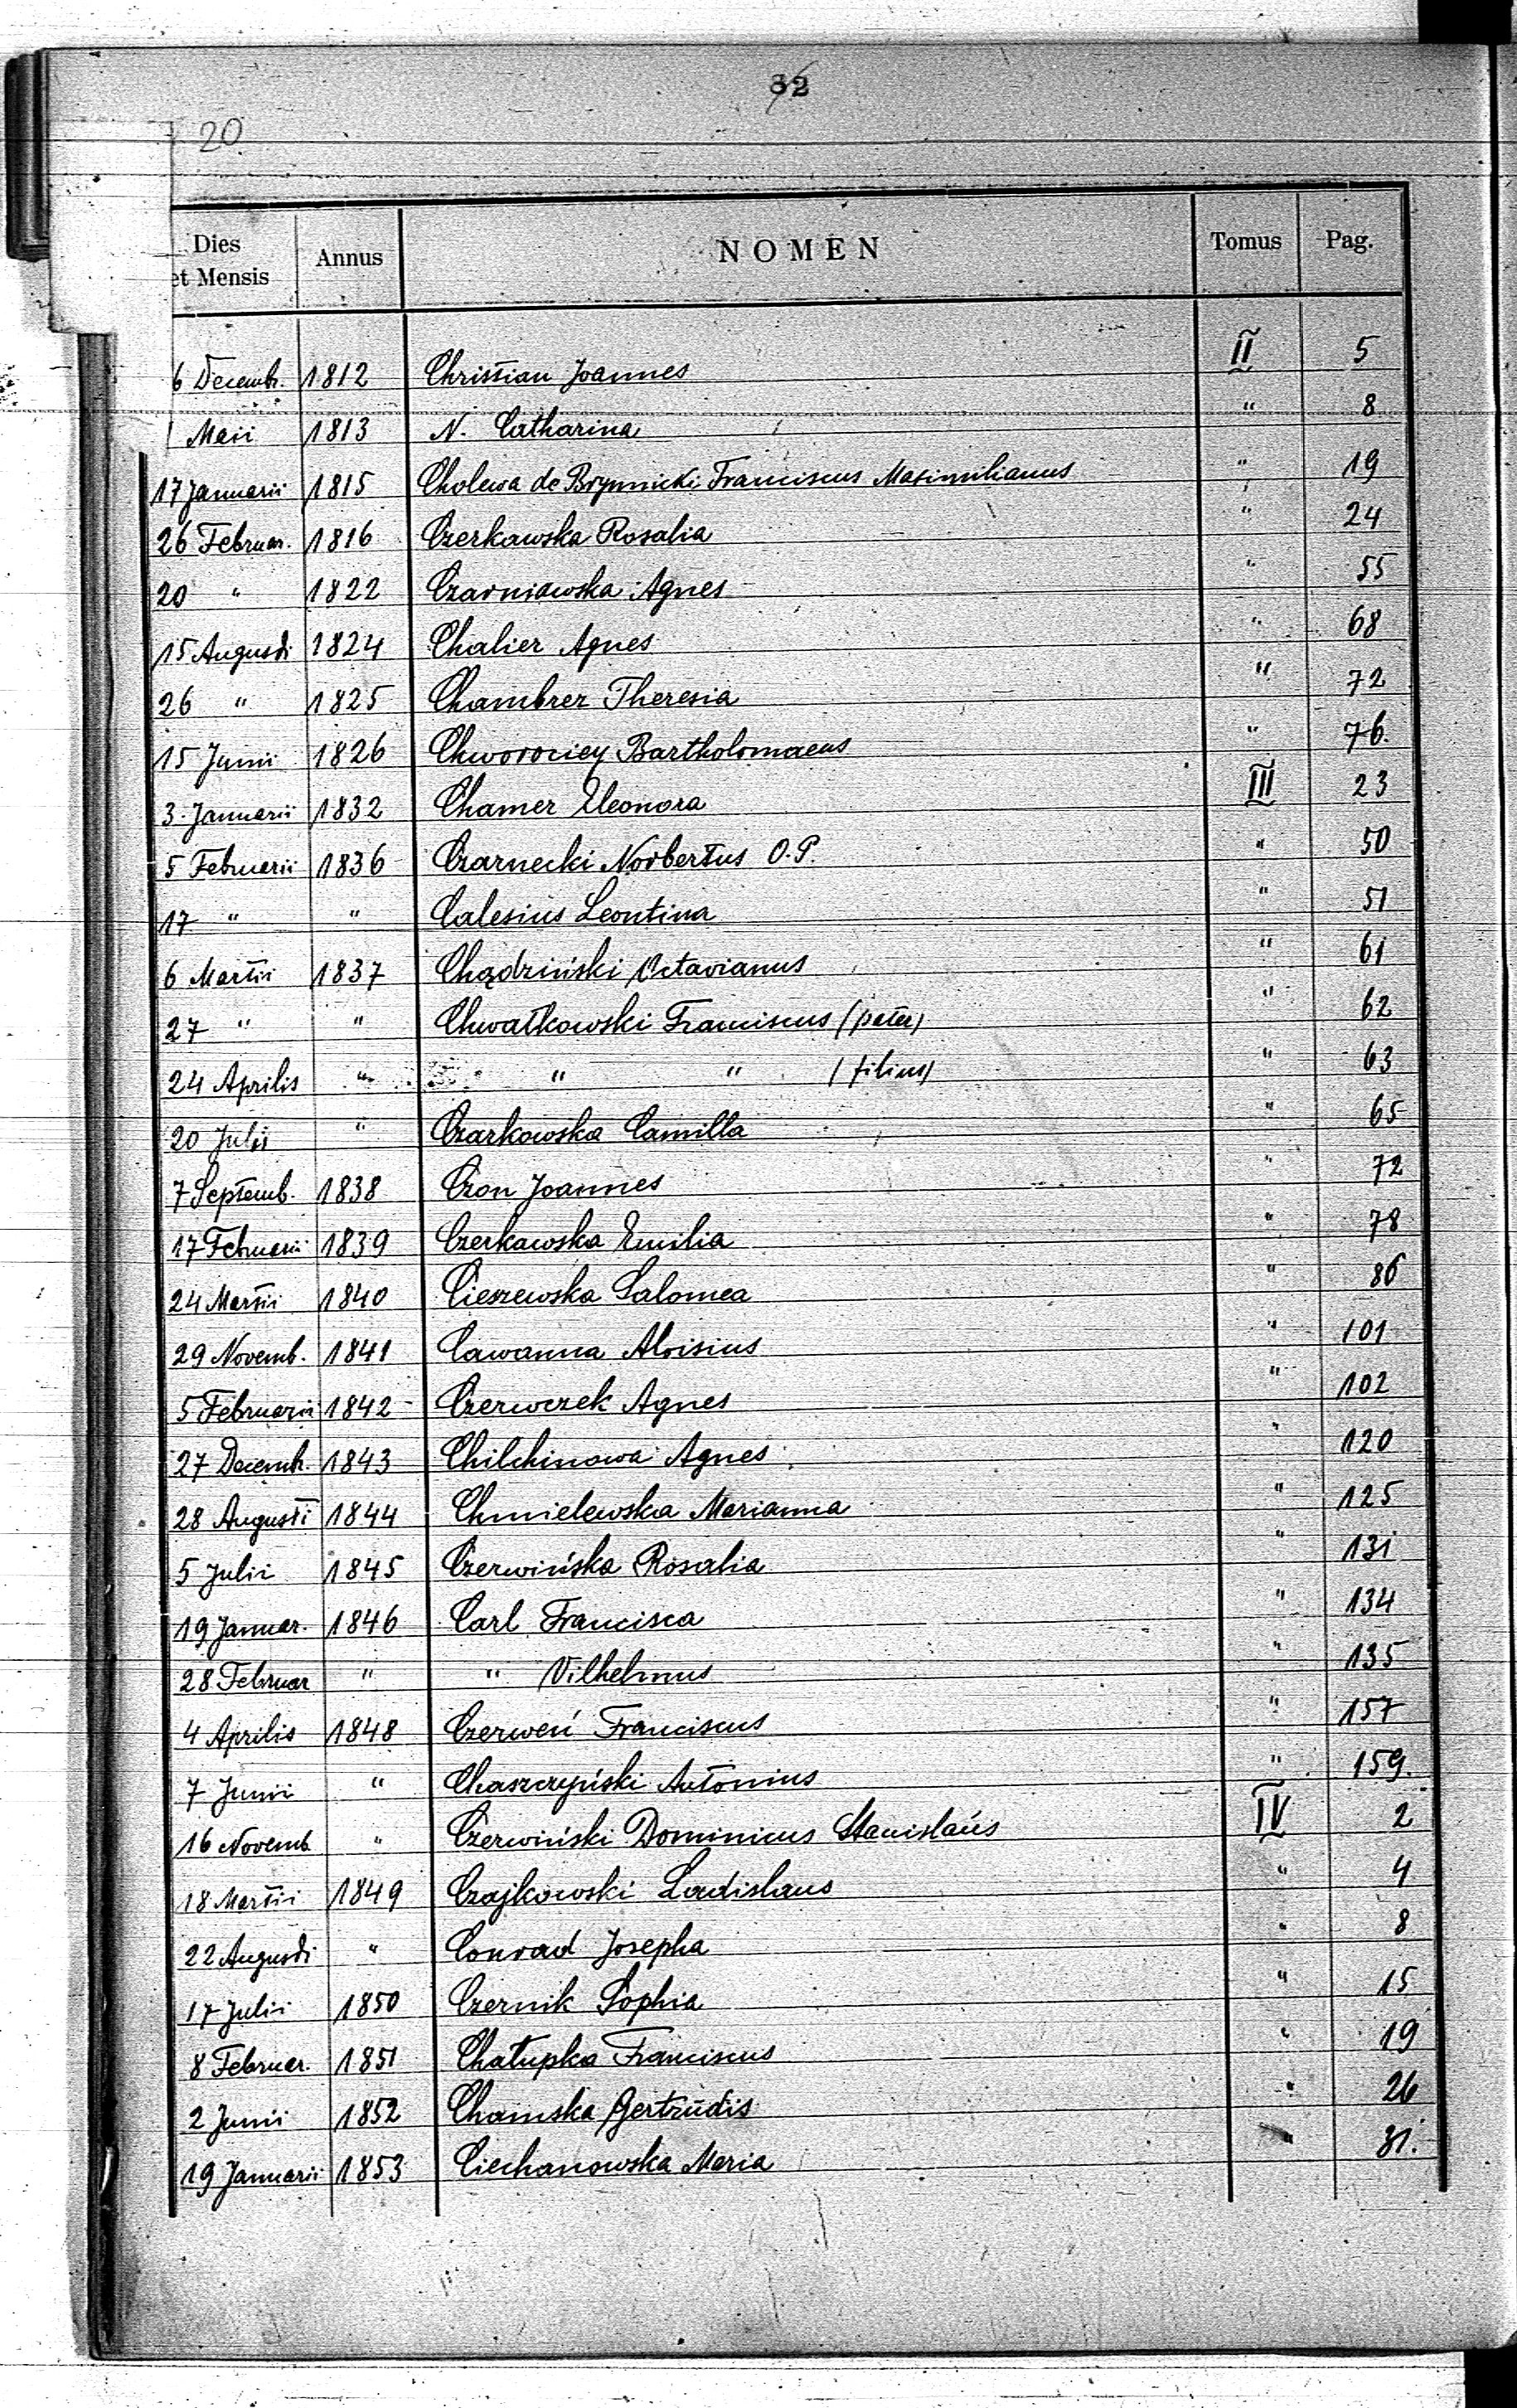 32
20
Dies et Mensis Annus NOMEN Tomus Pag.
6 Decemb. 1812 Christian Joannes II 5
1 Maii 1813 N. Catharina " 8
17 Januarii 1815 Cholewa de Brynnicki Franciscus Maximilianus " 19
26 Februar. 1816 Czerkawska Rosalia " 24
20 " 1822 Czarniawska Agnes " 55
15 Augusti 1824 Chalier Agnes " 68
26 " 1825 Chambrez Theresia " 72
15 Junii 1826 Chworociey Bartholomaeus " 76.
3. Januarii 1832 Chamer Eleonora III 23
5 Februarii 1836 Czarnecki Norbertus O.P. " 50
17 " " Calesius Leontina " 51
6 Martii 1837 Chądziński Octavianus " 61
27 " " Chwałkowski Franciscus (pater) " 62
24 Aprilis " " " (filius) " 63
20 Julii " Czarkowska Camilla " 65
7 Septemb. 1838 Czon Joannes " 72
17 Februarii 1839 Czerkawska Emilia " 78
24 Martii 1840 Cieszewska Salomea " 86
29 Novemb. 1841 Cawanna Aloisius " 101
5 Februarii 1842 Czerwczek Agnes " 102
27 Decemb. 1843 Chilchinowa Agnes " 120
28 Augusti 1844 Chmielewska Marianna " 125
5 Julii 1845 Czerwińska Rosalia " 131
19 Januar. 1846 Carl Francisca " 134
28 Februar " " Vilhelmus " 135
4 Aprilis 1848 Czerweń Franciscus " 157
7 Junii " Chaszczyński Antonius " 159.
16 Novemb. " Czerwiński Dominicus Stanislaus IV 2
18 Martii 1849 Czajkowski Ladislaus " 4
22 Augusti " Conrad Josepha " 8
17 Julii 1850 Czernik Sophia " 15
8 Februar. 1851 Chałupka Franciscus " 19
2 Junii 1852 Chamska Gertrudis " 26
19 Januarii 1853 Ciechanowska Maria " 31.